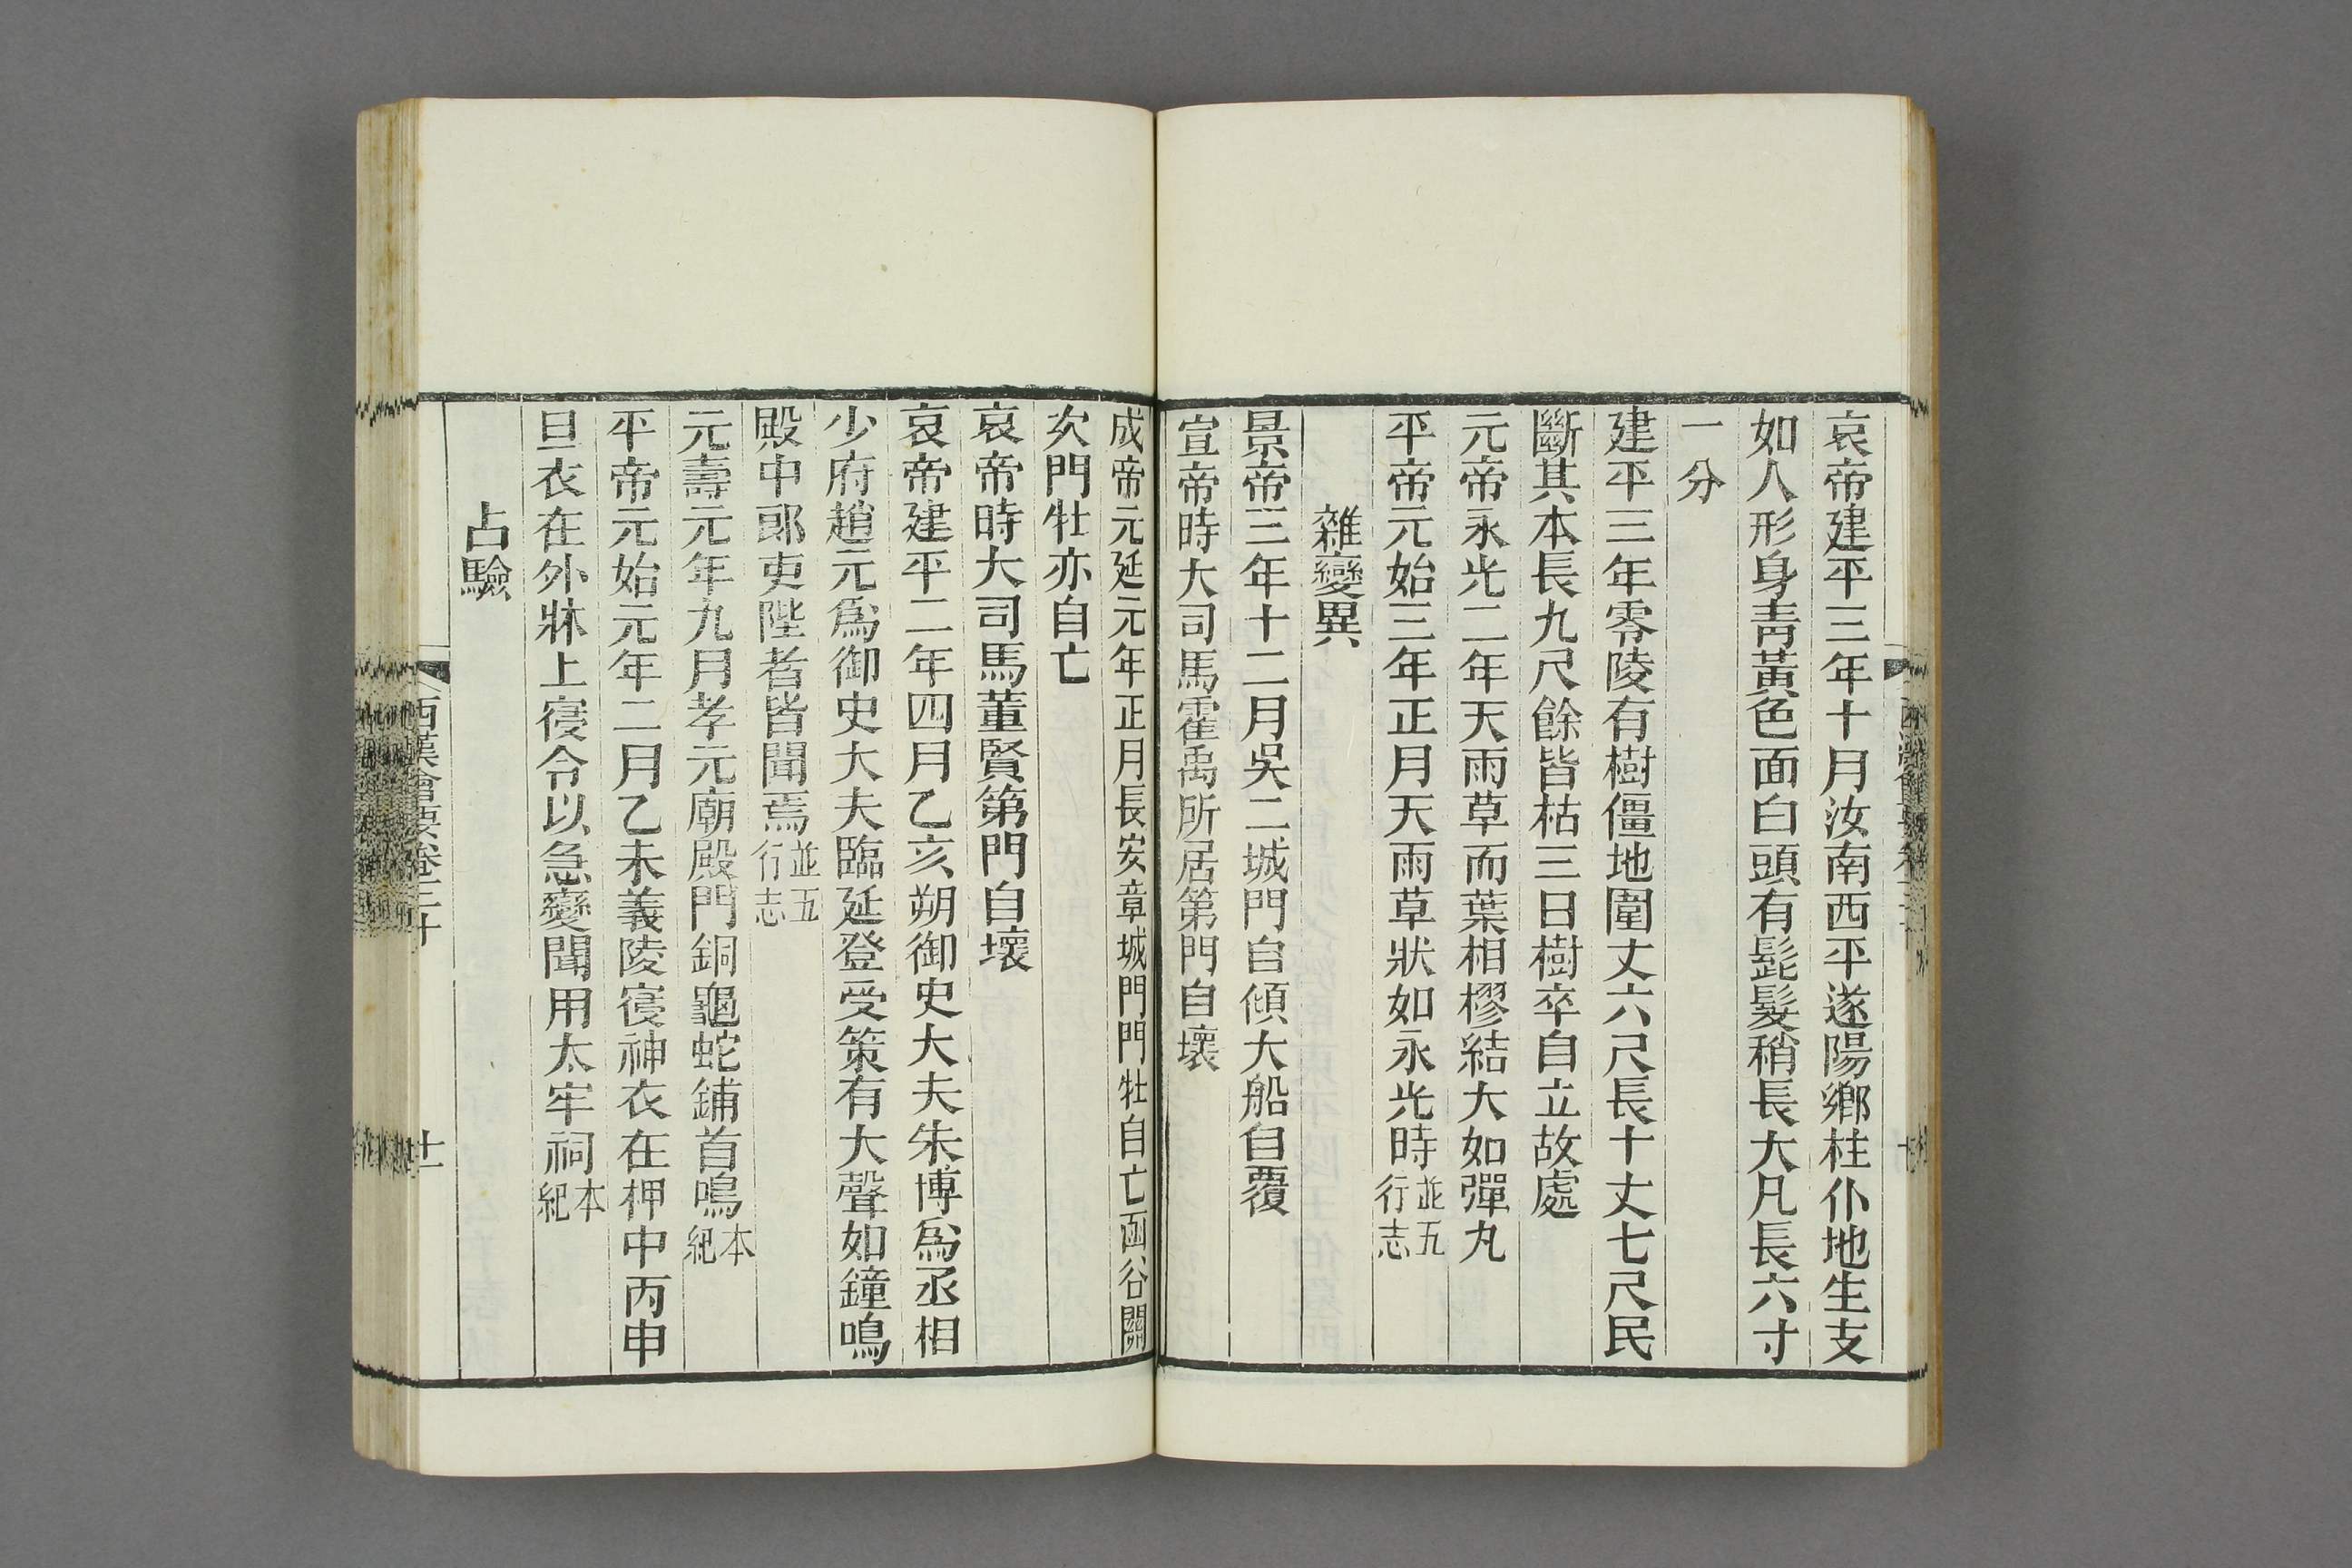 哀帝建平三年十月汝南西平遂陽鄉柱仆地生支
如人形身靑黃色面白頭有髭髮稍長大凡長六寸
一分
建平三年零陵有樹僵地圍丈六尺長十丈七尺民
斷其本長九尺餘皆枯三日樹卒自立故處
元帝永光二年天雨草而葉相樛結大如彈丸
平帝元始三年正月天雨草狀如永光時並五行志
雜變異
景帝三年十二月吳二城門自傾大船自覆
宣帝時大司馬霍禹所居第門自壞
成帝元延元年正月長安章城門門牡自亡函谷關
次門牡亦自亡
哀帝時大司馬董賢第門自壞
哀帝建平二年四月乙亥朔御史大夫朱博爲丞相
少府趙元爲御史大夫臨延登受策有大聲如鐘鳴
殿中郎吏陛者皆聞焉並五行志
元壽元年九月孝元廟殿門銅龜蛇鋪首鳴本紀
平帝元始元年二月乙未義陵寑神衣在柙中丙申
旦衣在外牀上寑令以急變聞用太牢祠本紀
占驗
西漢會要卷三十
十一